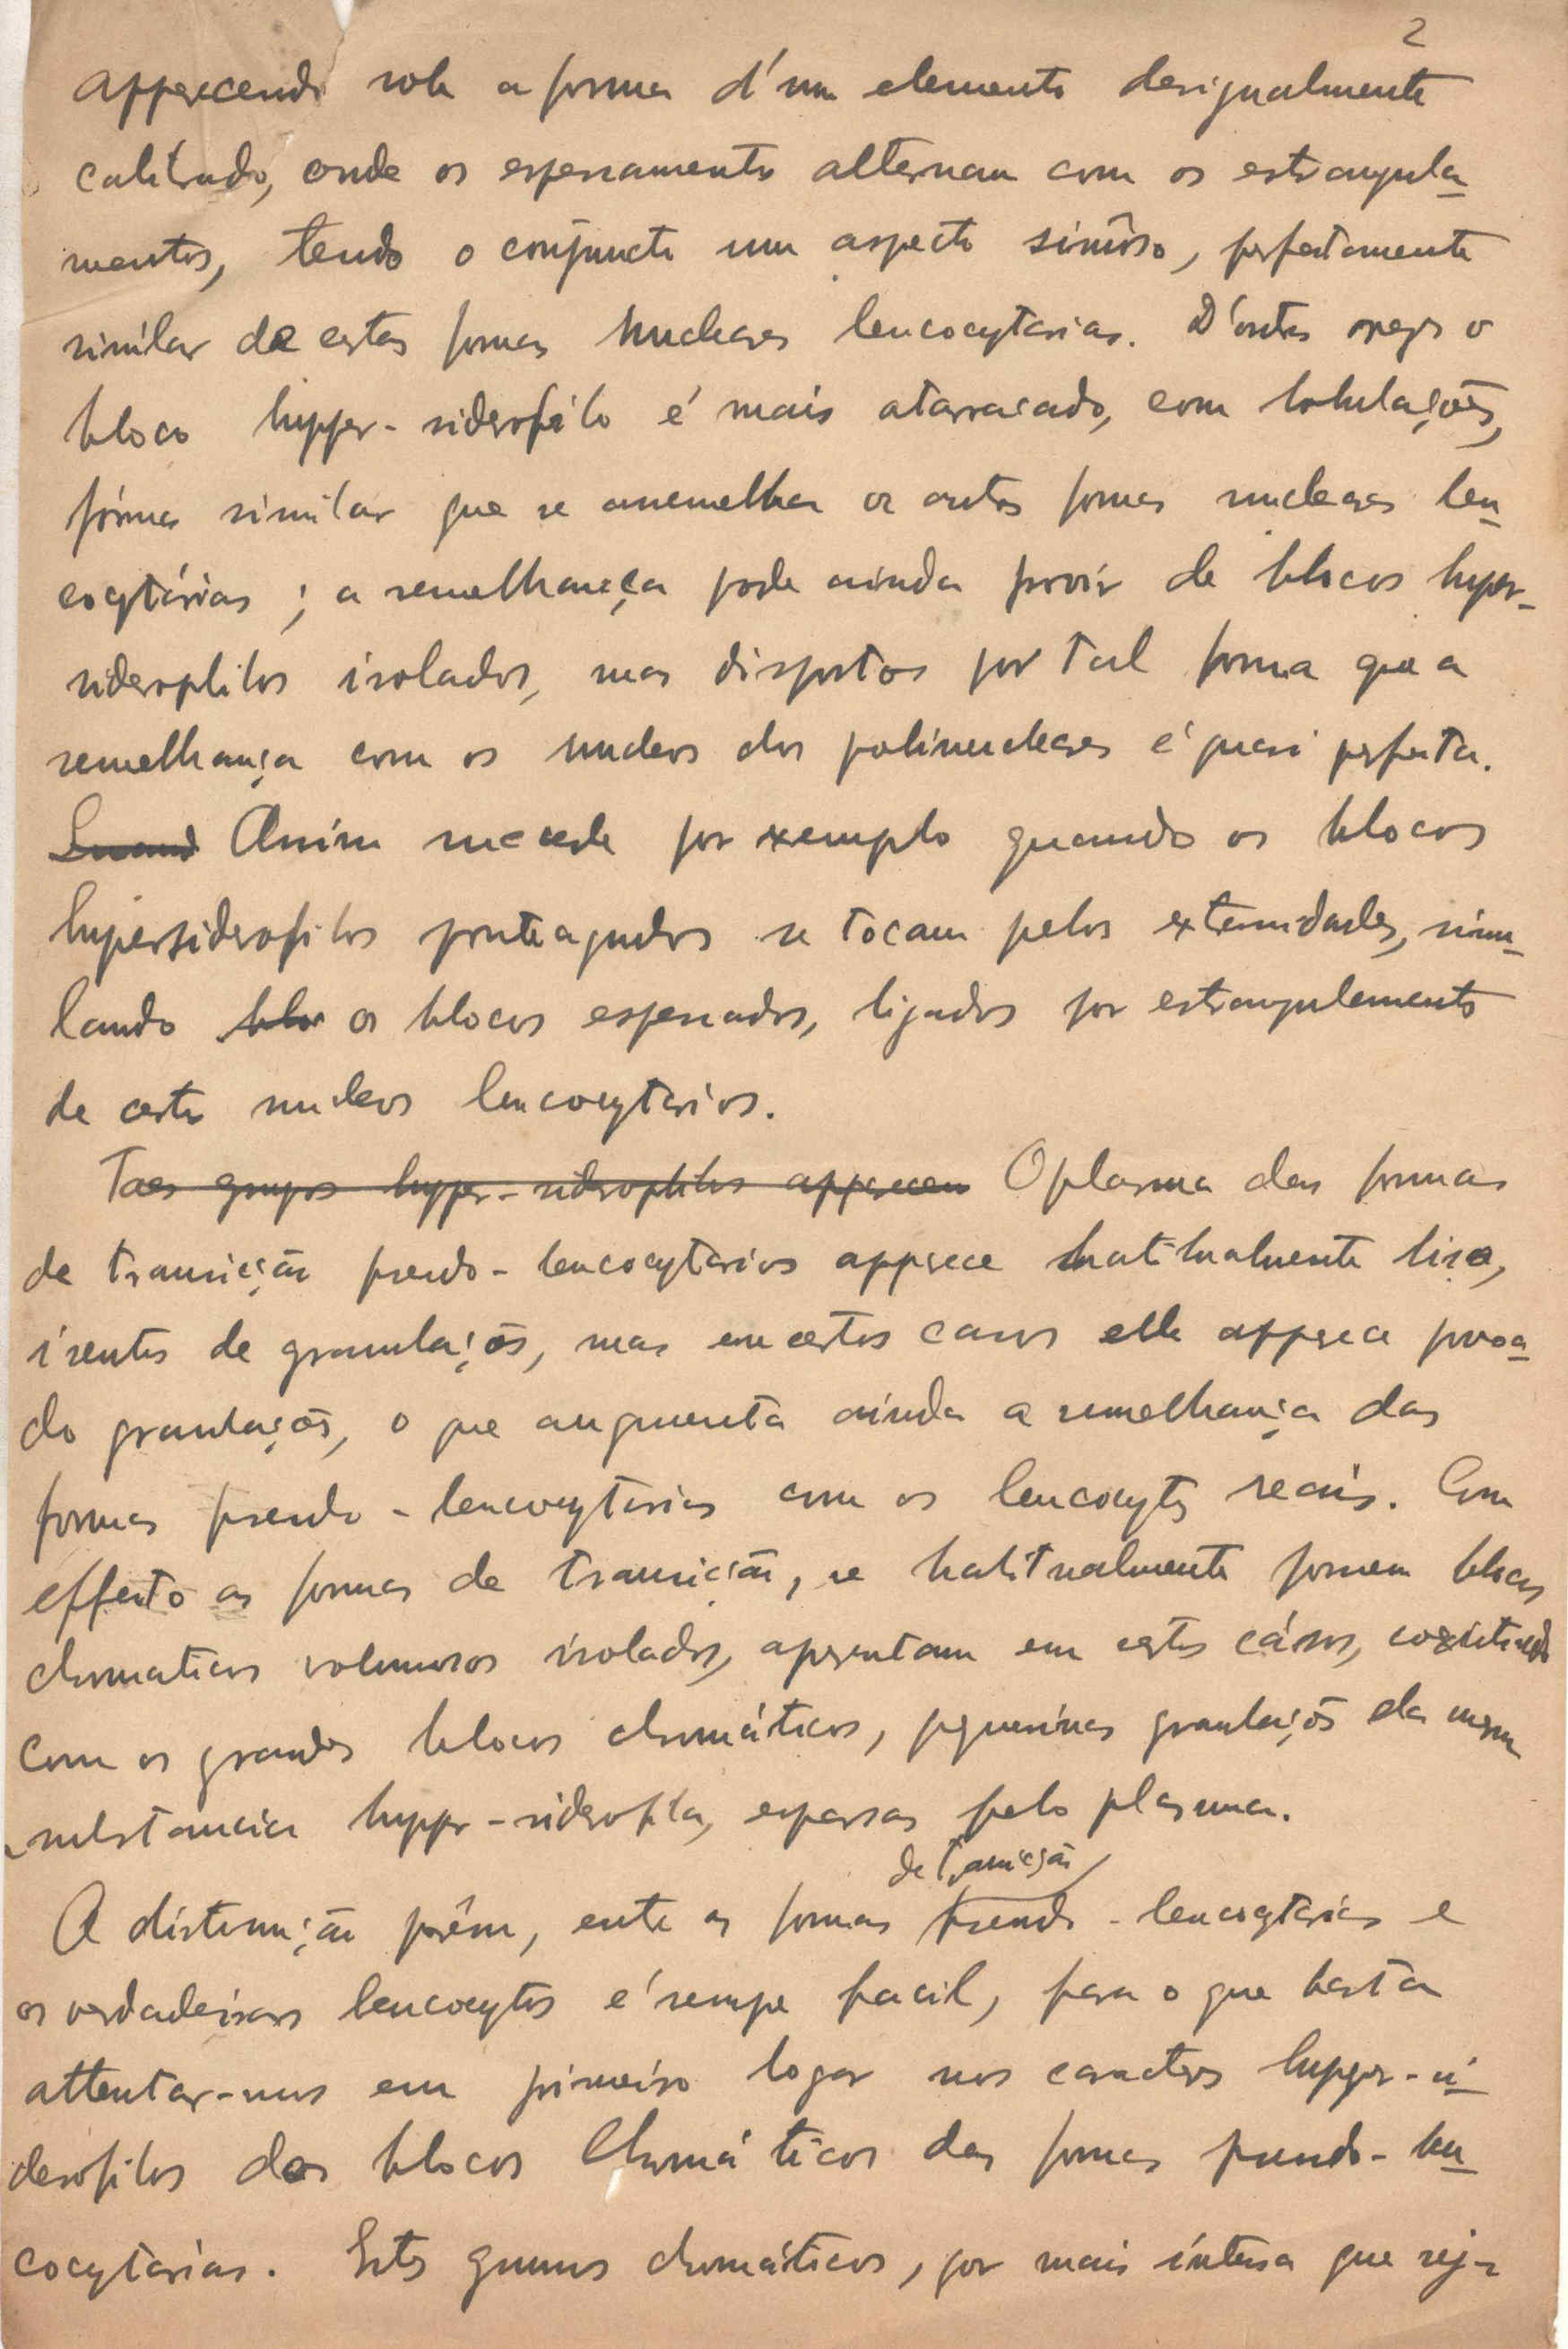 2
apparecendo sob a forma d'um elemento desigualmente
calibrado, onde os espessamentos alternam com os estrangula-
mentos, tendo o conjuncto um aspecto sinuoso, perfeitamente
similar de certas formas nucleares leucocytarias. D'outras vezes o
bloco hyper-siderofilo é mais atarracado, com lobulações,
fórma similar que se assemelha as outras formas nucleares leu-
cocytárias; a semelhança pode ainda provir de blocos hyper-
siderophilos isolados, mas dispostos por tal forma que a
semelhança com os nucleos dos polinucleares é quasi perfeita.
Quand Assim succede por exemplo quando os blocos
hypersiderofilos ponteagudos se tocam pelas extremidades, simu-
lando blo os blocos espessados, ligados por estrangulamentos
de certos nucleos leucocytarios.
Taes grupos hyper-siderophilos apparecem O plasma das formas
de transicção pseudo-leucocytarias apparece habitualmente liso,
isentos de granulações, mas em certos casos elle apparece povoa-
do granulações, o que augmenta ainda a semelhança das
formas pseudo-leucocytarias com os leucocytos reais. Com
effeito as formas de transicção, se habitualmente possuem blocos
chromaticos volumosos isolados, apresentam em certos cásos, coexistindo
com os grandes blocos chromáticos, pequeninas granulações da mesma
substancia hyper-siderofila, esparsas pelo plasma.
de transicção
A distincção porêm, entre as formas pseudo-leucocytarias e
os verdadeiros leucocytos é sempre facil, para o que basta
attentar-mos em primeiro logar nos caracteres hyper-si-
derofilos dos blocos chromáticos das formas pseudo-leu-
cocytarias. Estes grumos chromáticos, por mais intensa que seja